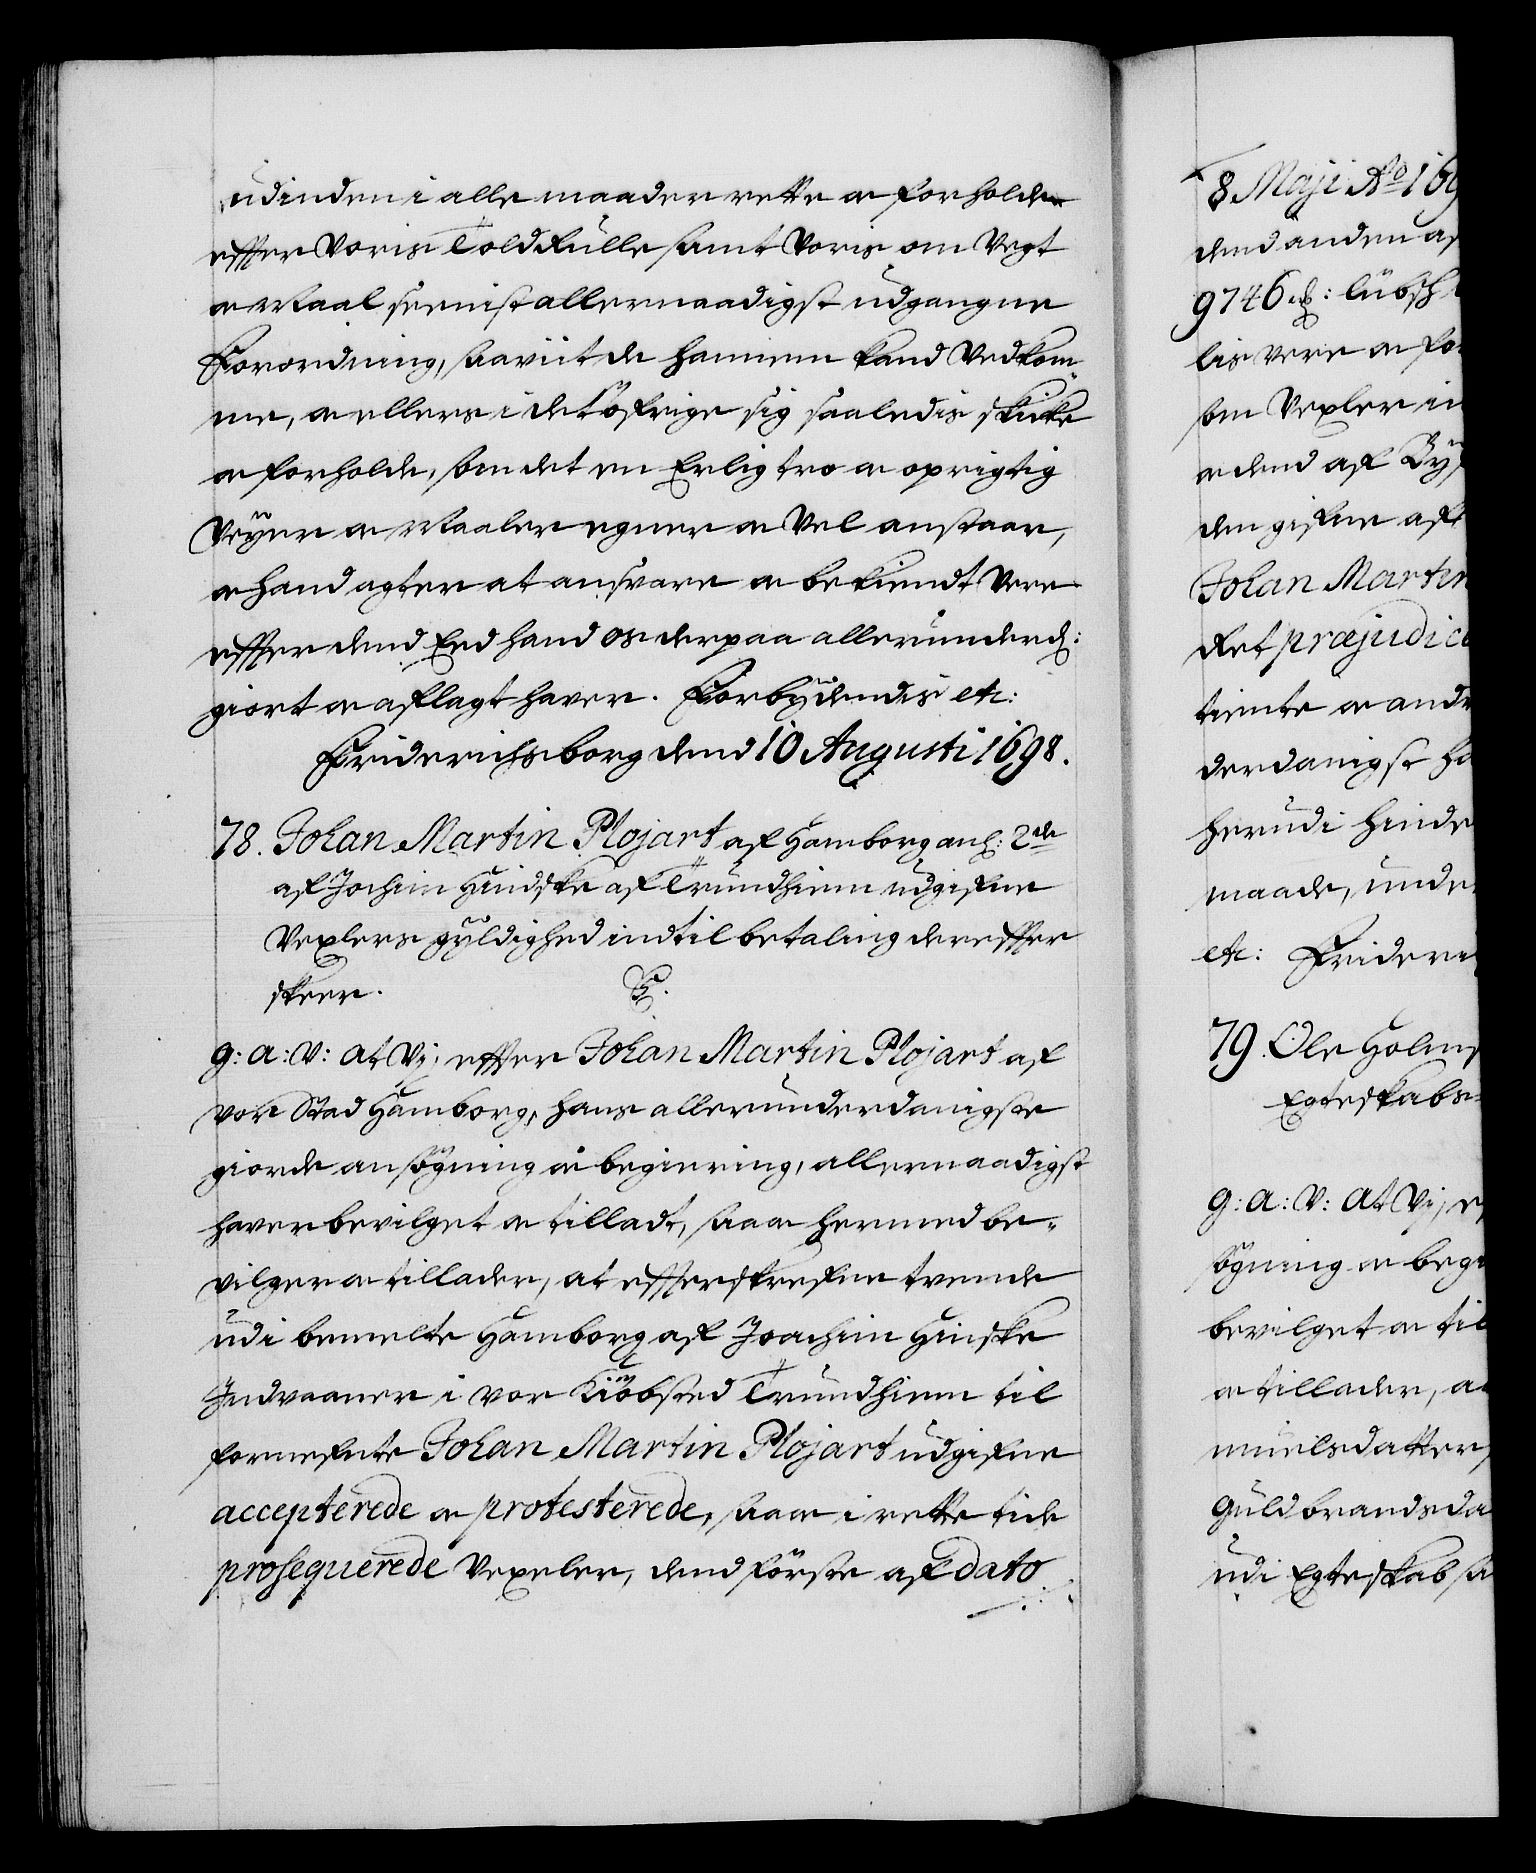 udinden i alle maader rette oc forholde
effter Voris Told Rulle samt Voris om Vegt
oc Maal seenist allernaadigst udgangne
Forordning, saaviit de hannem kand Vedkom-
me, oc ellers i det öfrige sig saaledis skicke
oc forholde, som det en Erlig tro oc oprigtig
Veÿer oc Maaler egner oc Vel anstaar,
oc hand agter at ansvare oc bekiendt Vere
effter dend Eed hand os derpaa allerunderd:
giort oc aflagt haver. Forbÿdendis etc:
Friderichsborg dend 10 Augusti 1698.
78. Johan Martin Plojart af Hamborg anl: 2de
af Jochim Hindske af Trundhiem udgifne
Vexlers gÿldighed indtil betaling dereffter
skeer. S.
G: A: V: At Vj, effter Johan Martin Plojart af
vor Stad Hamborg, hans allerunderdanigste
giorde ansögning oc begiering, allernaadigst
haver bevilget oc tilladt, saa oc hermed be-
vilger oc tillader, at effterskrefne tvende
udi bemelte Hamborg af Joachim Hinske
Indvaaner i vor Kiöbsted Trundhiem til
fornefnte Johan Martin Plojart udgifne
accepterede oc protesterede, saa oc i rette tide
prosequerede Vexeler, dend förste af dato
8 Maji Ao 169
dend anden af
9746 : lübsh
lis vere oc for
som Vexler in
oc dend af
den gifne aff
Johan Martin
Ret præjudice
tiente oc andr
derdanigst ha
herudi hinde
maade, unde
etc: Frideri
79. Ole Holms
Egteskabs-
G: A: V: At Vj, e
sögning oc begi
bevilget oc til
oc tillader, at
muelsdatter,
Guldbrandsda
udi Egteskab sa